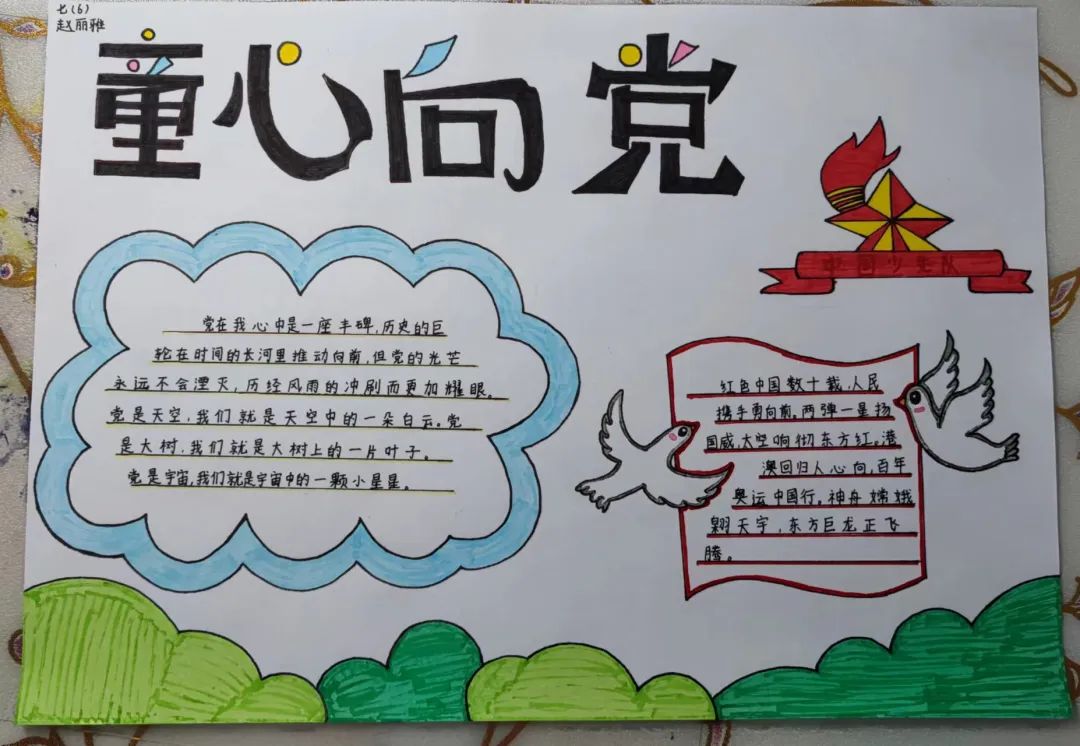 七(6)
赵丽雅
童心向党
中国少年队
党在我心中是一座丰碑,历史的巨
轮在时间的长河里推动向前,但党的光芒
永远不会湮灭,历经风雨的冲刷而更加耀眼。
党是天空,我们就是天空中的一朵白云。党
是大树,我们就是大树上的一片叶子。
党是宇宙,我们就是宇宙中的一颗小星星。
红色中国数十载,人民
携手勇向前。两弹一星扬
国威,太空响彻东方红。港
澳回归人心向,百年
奥运中国行。神舟嫦娥
翱天宇,东方巨龙正飞
腾。